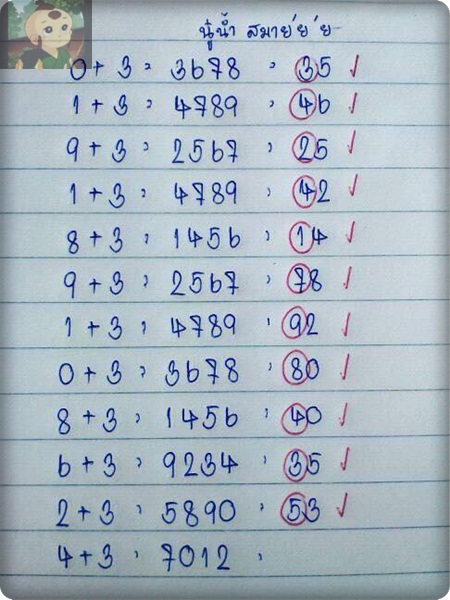 นู๋น้ำ สมาย'ย'ย
0 + 3 = 3678 = 35 ✓
1 + 3 = 4789 = 46 ✓
9 + 3 = 2567 = 25 ✓
1 + 3 = 4789 = 42 ✓
8 + 3 = 1456 = 14 ✓
9 + 3 = 2567 = 78 ✓
1 + 3 = 4789 = 92 ✓
0 + 3 = 3678 = 80 ✓
8 + 3 = 1456 = 40 ✓
6 + 3 = 9234 = 35 ✓
2 + 3 = 5890 = 53 ✓
4 + 3 = 7012 =